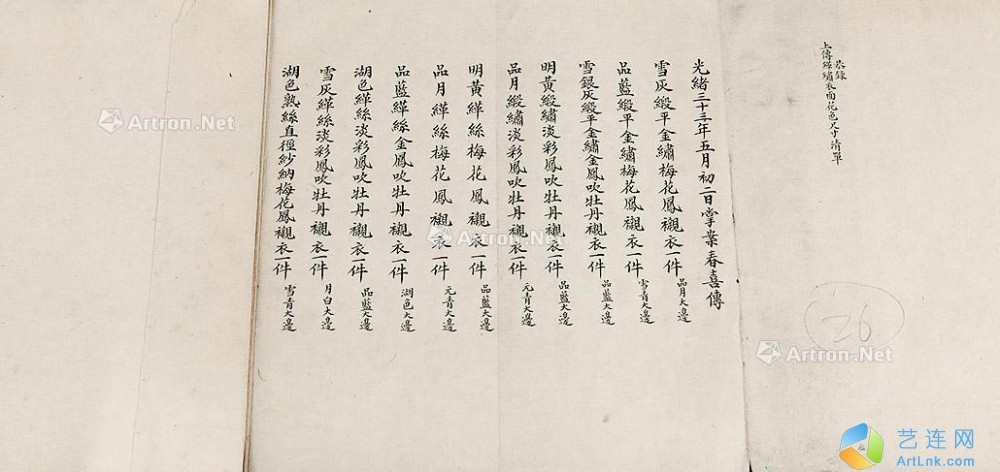 恭錄
上傳緙繡衣面花色尺寸清單
光緒三十三年五月初二日掌案春喜傳
雪灰緞平金繡梅花鳳襯衣一件 品月大邊
品藍緞平金繡梅花鳳襯衣一件 雪青大邊
雪銀灰緞平金繡金鳳吹牡丹襯衣一件 品藍大邊
明黃緞繡淡彩鳳吹牡丹襯衣一件 品藍大邊
品月緞繡淡彩鳳吹牡丹襯衣一件 元青大邊
明黃緙絲梅花鳳襯衣一件 品藍大邊
品月緙絲梅花鳳襯衣一件 元青大邊
品藍緙絲金鳳吹牡丹襯衣一件 湖色大邊
湖色緙絲淡彩鳳吹牡丹襯衣一件 品藍大邊
雪灰緙絲淡彩鳳吹牡丹襯衣一件 月白大邊
湖色熟絲直徑紗納梅花鳳襯衣一件 雪青大邊
26
Artron.Net
Artron.Net
Artron.Net
Artron.Net
Artron.Net
艺连网
ArtLnk.com